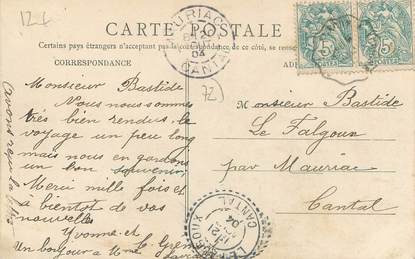 CARTE POSTALE
Certains pays étrangers n'acceptant pas la correspondance de ce côté, se renseigner
CORRESPONDANCE
MAURIAC
04
CANTAL
72
Monsieur Bastide
Nous nous sommes
très bien rendus. le
voyage un peu long
mais nous en gardons
un bon souvenir
Merci mille fois et
à bientôt de vos
nouvelles
Yvonne
Un bonjour à Mme
Monsieur Bastide
Le Falgoux
par Mauriac
Cantal
LE FALGOUX
04
CANTAL
5
5